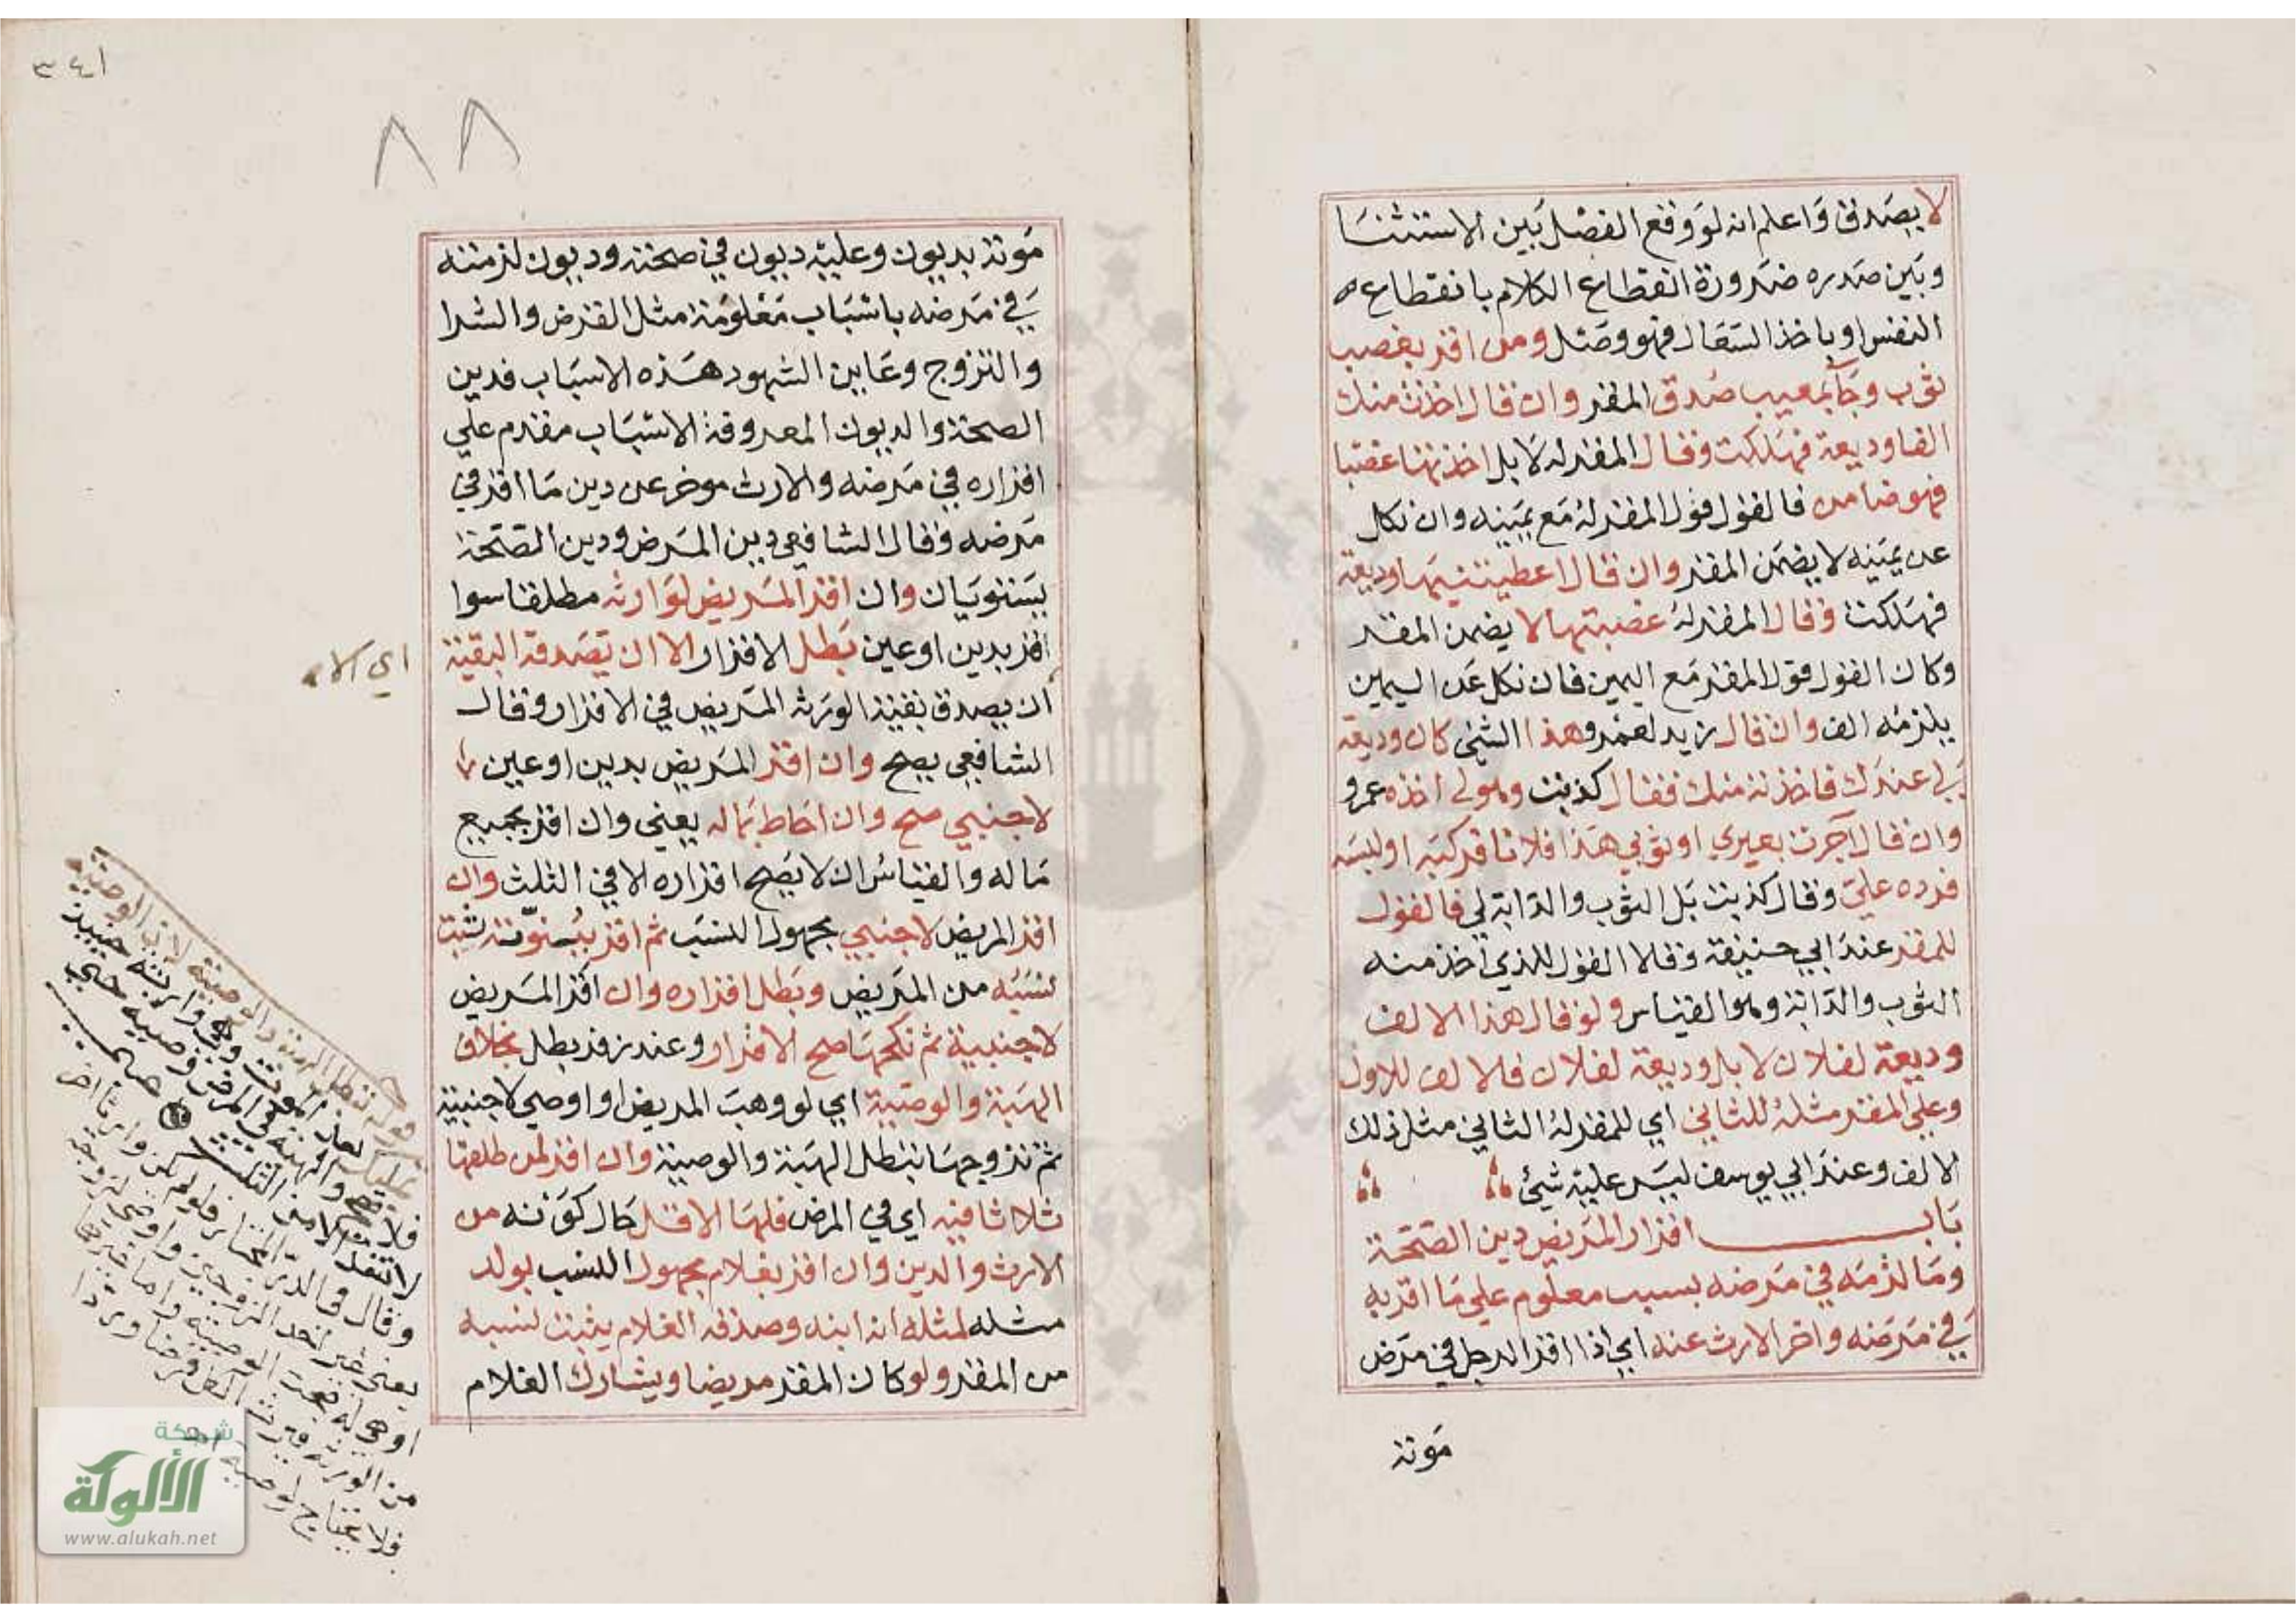 لا يصدق واعلم انه لو وقع الفصل بين الاستثنا
وبين صدره ضرورة انقطاع الكلام بانقطاع
النفس او باخذ السعال فهو وصل ومن اقر بغصب
ثوب وجآ بمعيب صدق المقر وان قال اخذت منك
الفا وديعة فهلكت وقال المقر له لا بل اخذتها غصبا
فهو ضامن فالقول قول المقر له مع يمينه وان نكل
عن يمينه لا يضمن المقر وان قال اعطيتنيها وديعة
فهلكت وقال المقر له غصبتها لا يضمن المقر
وكان القول قول المقر مع اليمين فان نكل عن اليمين
يلزمه الف وان قال زيد لعمرو هذا الشئ كان وديعة
لي عندك فاخذته منك فقال كذبت وهو لي اخذه عمرو
وان قال آجرت بعيري او ثوبي هذا فلانا فركبه او لبسه
فرده علي وقال كذبت بل الثوب والدابة لي فالقول
للمقر عند ابي حنيفة وقالا القول للذي اخذ منه
الثوب والدابة وهو القياس ولو قال هذا الالف
وديعة لفلان لا بل وديعة لفلان فالالف للاول
وعلي المقر مثله للثاني اي للمقر له الثاني مثل ذلك
الالف وعند ابي يوسف ليس عليه شئ
باب اقرار المريض دين الصحة
وما لزمه في مرضه بسبب معلوم علي ما اقر به
في مرضه واخر الارث عنه اي اذا اقر الرجل في مرض
موته
٣٤١
٨٨
موته بديون وعليه ديون في صحته وديون لزمته
في مرضه باسباب معلومة مثل القرض والشرا
والتزوج وعاين الشهود هذه الاسباب فدين
الصحة والديون المعروفة الاسباب مقدم علي
اقراره في مرضه والارث موخر عن دين ما اقر في
مرضه وقال الشافعي دين المرض ودين الصحة
يستويان وان اقر المريض لوارثه مطلقا سوا
اقر بدين او عين بطل الاقرار الا ان تصدقه البقية
اي الا
ان يصدق بقية الورثه المريض في الاقرار وقال
الشافعي يصح وان اقر المريض بدين او عين
لاجنبي صح وان احاط بماله يعني وان اقر بجميع
ماله والقياس ان لا يصح اقراره الا في الثلث وان
اقر المريض لاجنبي مجهول النسب ثم اقر ببنوته ثبت
نسبه من المريض وبطل اقراره وان اقر المريض
لاجنبية ثم نكحها صح الاقرار وعند زفر بطل بخلاف
الهبة والوصية اي لو وهب المريض او اوصي لاجنبية
ثم تزوجها تبطل الهبة والوصية وان اقر لمن طلقها
ثلاثا فيه اي في المرض فلها الاقل حال كونه من
الارث والدين وان اقر بغلام مجهول النسب يولد
مثله لمثله انه ابنه وصدقه الغلام يثبت نسبه
من المقر ولو كان المقر مريضا ويشارك الغلام
قوله تبطل الهبة والوصية لان الوصية
تمليك بعد الموت وهي وارثة حينيذ
فلا تصح والهبة في المرض وصية حتي
لا تنفذ الا من الثلث
وقال في الدر المختار
يعني غير احد الزوجين
او هي له صحت الوصية واما غيرها
من الورثة فيرث الكل فرضا وردا
فلا يحتاج لوصية
شبكة
الألوكة
www.alukah.net